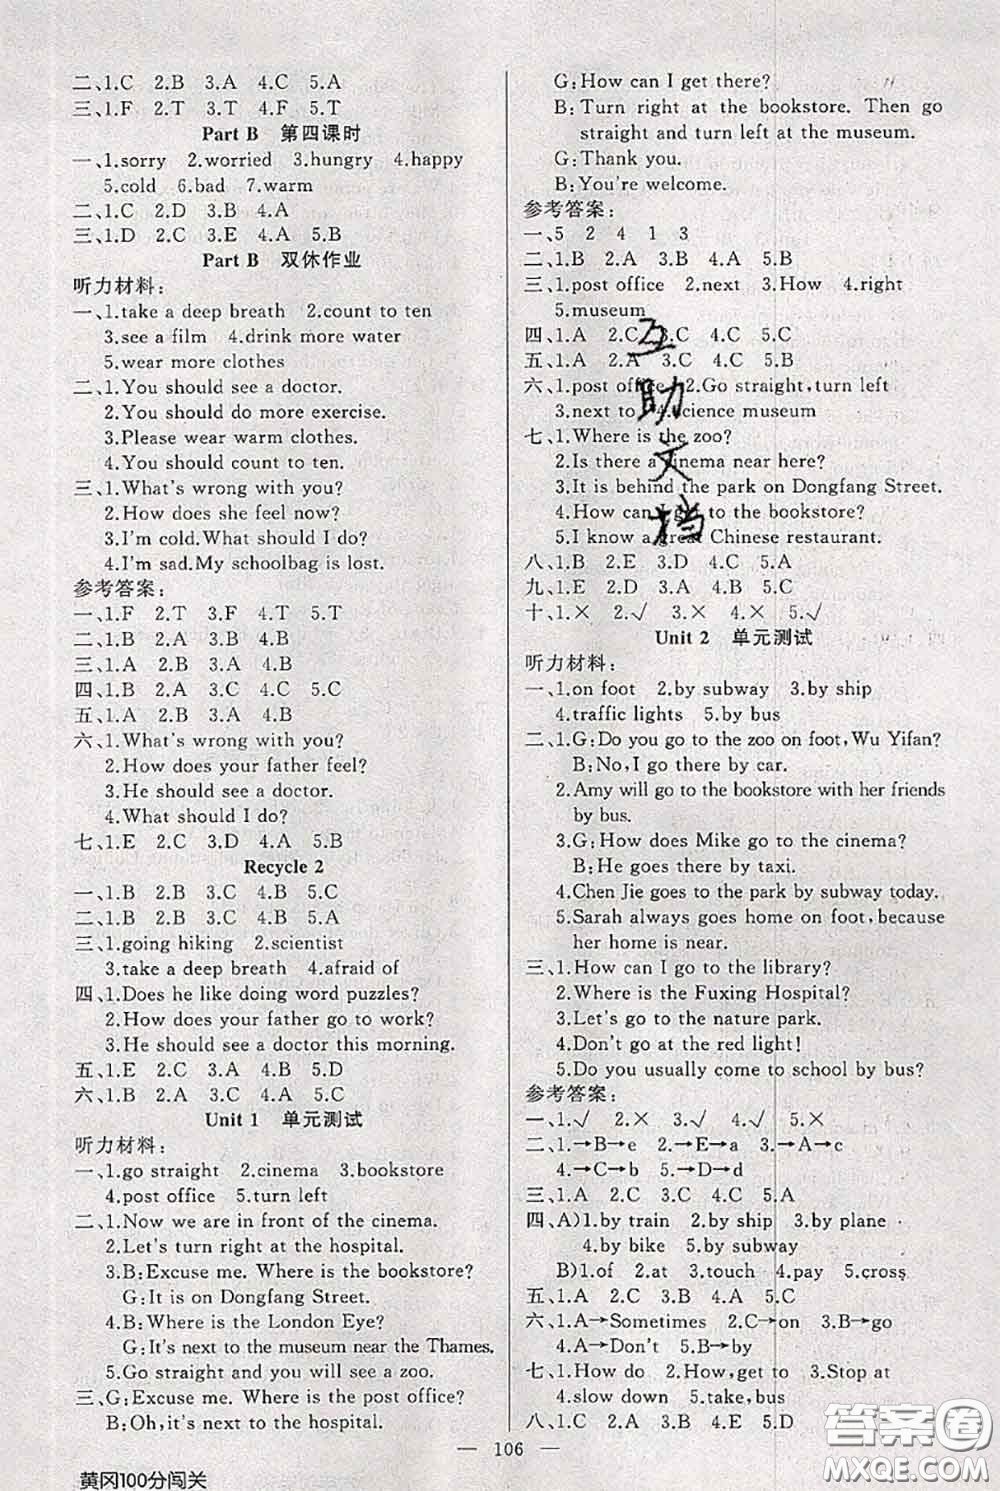 二、1.C 2.B 3.A 4.C 5.A
三、1.F 2.T 3.T 4.F 5.T
Part B 第四课时
一、1.sorry 2.worried 3.hungry 4.happy
5.cold 6.bad 7.warm
二、1.C 2.D 3.B 4.A
三、1.D 2.C 3.E 4.A 5.B
Part B 双休作业
听力材料:
一、1.take a deep breath 2.count to ten
3.see a film 4.drink more water
5.wear more clothes
二、1.You should see a doctor.
2.You should do more exercise.
3.Please wear warm clothes.
4.You should count to ten.
三、1.What's wrong with you?
2.How does she feel now?
3.I'm cold.What should I do?
4.I'm sad.My schoolbag is lost.
参考答案:
一、1.F 2.T 3.F 4.T 5.T
二、1.B 2.A 3.B 4.B
三、1.A 2.B 3.A 4.B
四、1.B 2.A 3.C 4.C 5.C
五、1.A 2.B 3.A 4.B
六、1.What's wrong with you?
2.How does your father feel?
3.He should see a doctor.
4.What should I do?
七、1.E 2.C 3.D 4.A 5.B
Recycle 2
一、1.B 2.B 3.C 4.B 5.C
二、1.B 2.B 3.C 4.B 5.A
三、1.going hiking 2.scientist
3.take a deep breath 4.afraid of
四、1.Does he like doing word puzzles?
2.How does your father go to work?
3.He should see a doctor this morning.
五、1.E 2.C 3.A 4.B 5.D
六、1.B 2.B 3.C 4.A 5.C
Unit 1 单元测试
听力材料:
一、1.go straight 2.cinema 3.bookstore
4.post office 5.turn left
二、1.Now we are in front of the cinema.
2.Let's turn right at the hospital.
3.B:Excuse me. Where is the bookstore?
G:It is on Dongfang Street.
4.B:Where is the London Eye?
G:It's next to the museum near the Thames.
5.Go straight and you will see a zoo.
三、G:Excuse me. Where is the post office?
B:Oh,it's next to the hospital.
G:How can I get there?
B:Turn right at the bookstore. Then go
straight and turn left at the museum.
G:Thank you.
B:You're welcome.
参考答案:
一、5 2 4 1 3
二、1.B 2.A 3.A 4.A 5.B
三、1.post office 2.next 3.How 4.right
5.museum
四、1.A 2.C 3.C 4.C 5.C
五、1.A 2.A 3.C 4.C 5.B
六、1.post office 2.Go straight,turn left
3.next to 4.science museum
七、1.Where is the zoo?
2.Is there a cinema near here?
3.It is behind the park on Dongfang Street.
4.How can I get to the bookstore?
5.I know a great Chinese restaurant.
八、1.B 2.E 3.D 4.C 5.A
九、1.E 2.D 3.A 4.B 5.C
十、1.× 2.√ 3.× 4.× 5.√
Unit 2 单元测试
听力材料:
一、1.on foot 2.by subway 3.by ship
4.traffic lights 5.by bus
二、1.G:Do you go to the zoo on foot,Wu Yifan?
B:No,I go there by car.
2.Amy will go to the bookstore with her friends
by bus.
3.G:How does Mike go to the cinema?
B:He goes there by taxi.
4.Chen Jie goes to the park by subway today.
5.Sarah always goes home on foot,because
her home is near.
三、1.How can I go to the library?
2.Where is the Fuxing Hospital?
3.Let's go to the nature park.
4.Don't go at the red light!
5.Do you usually come to school by bus?
参考答案:
一、1.√ 2.× 3.√ 4.√ 5.×
二、1.→B→e 2.→E→a 3.→A→c
4.→C→b 5.→D→d
三、1.A 2.C 3.C 4.C 5.A
四、A)1.by train 2.by ship 3.by plane
4.by bike 5.by subway
B)1.of 2.at 3.touch 4.pay 5.cross
五、1.A 2.B 3.B 4.A 5.C
六、1.A→Sometimes 2.C→on 3.B→go
4.A→Don't 5.B→by
七、1.How do 2.How,get to 3.Stop at
4.slow down 5.take,bus
八、1.C 2.A 3.B 4.E 5.D
互
助
文
档
— 106 —
黄冈100分闯关
答案圈
MXQE.COM